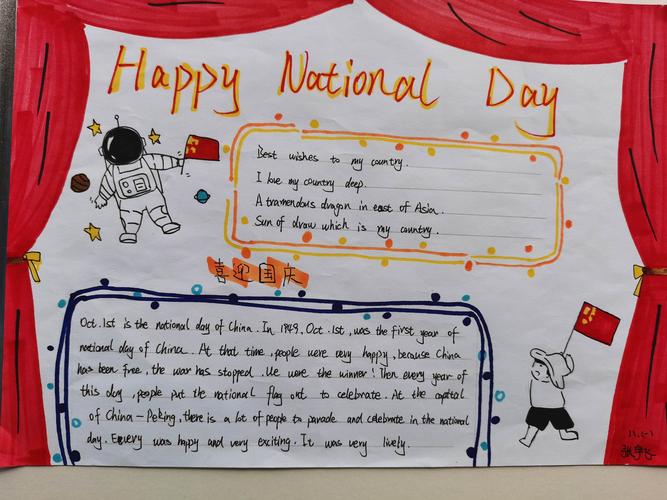 Happy National Day
Best wishes to my country.
I love my country deep.
A tramendous dragon in east of Asia.
Sun of draw which is my country.
喜迎国庆
Oct.1st is the national day of China. In 1949, Oct.1st, was the first year of
national day of China. At that time, people were very happy, because China
has been free, the war has stopped. We were the winner! Then every year of
this day, people put the national flag out to celebrate. At the capital
of China-Peking, there is a lot of people to parade and celebrate in the national
day. Eavery was happy and very exciting. It was very lively.